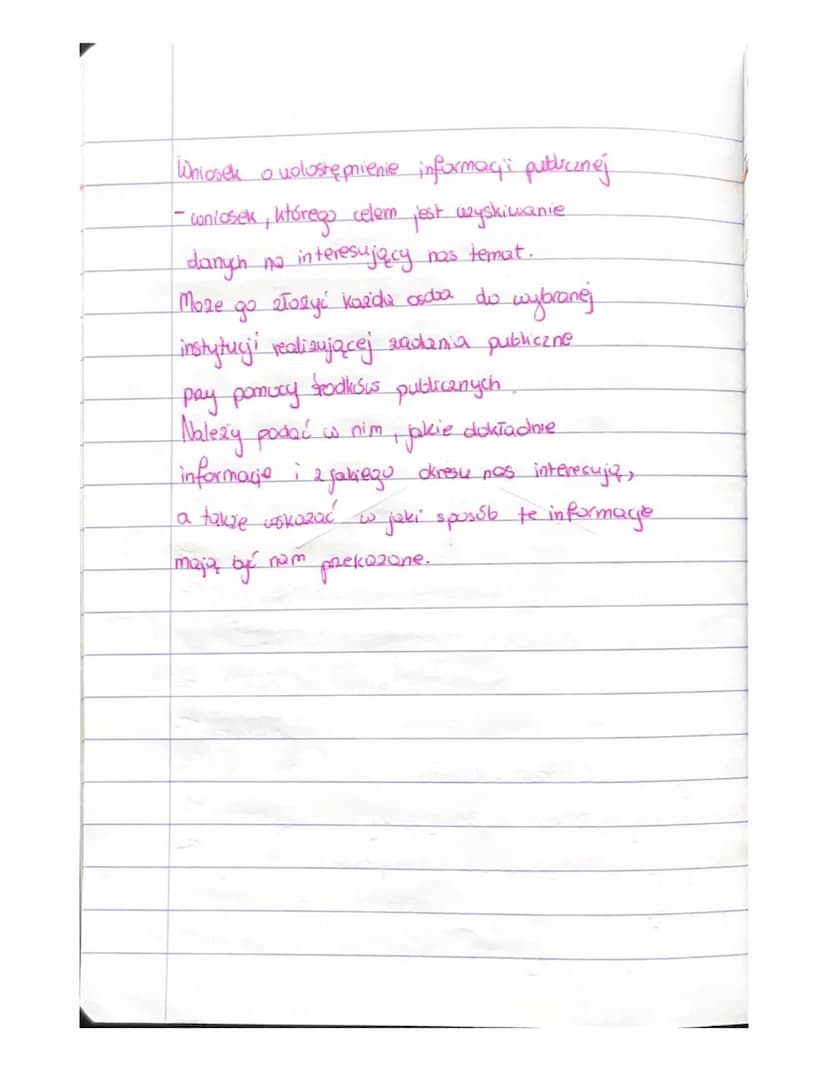 Wniosek o udostępnienie informacji publicznej
- wniosek, którego celem jest uzyskiwanie
danych na interesujący nas temat.
Może go złożyć każda osoba do wybranej
instytucji realizującej zadania publiczne
pzy pomocy środków publicznych.
Należy podać w nim, jakie dokładnie
informacje i z jakiego okresu nas interesują,
a także wskazać w jaki sposób te informacje
mają być nam przekazane.